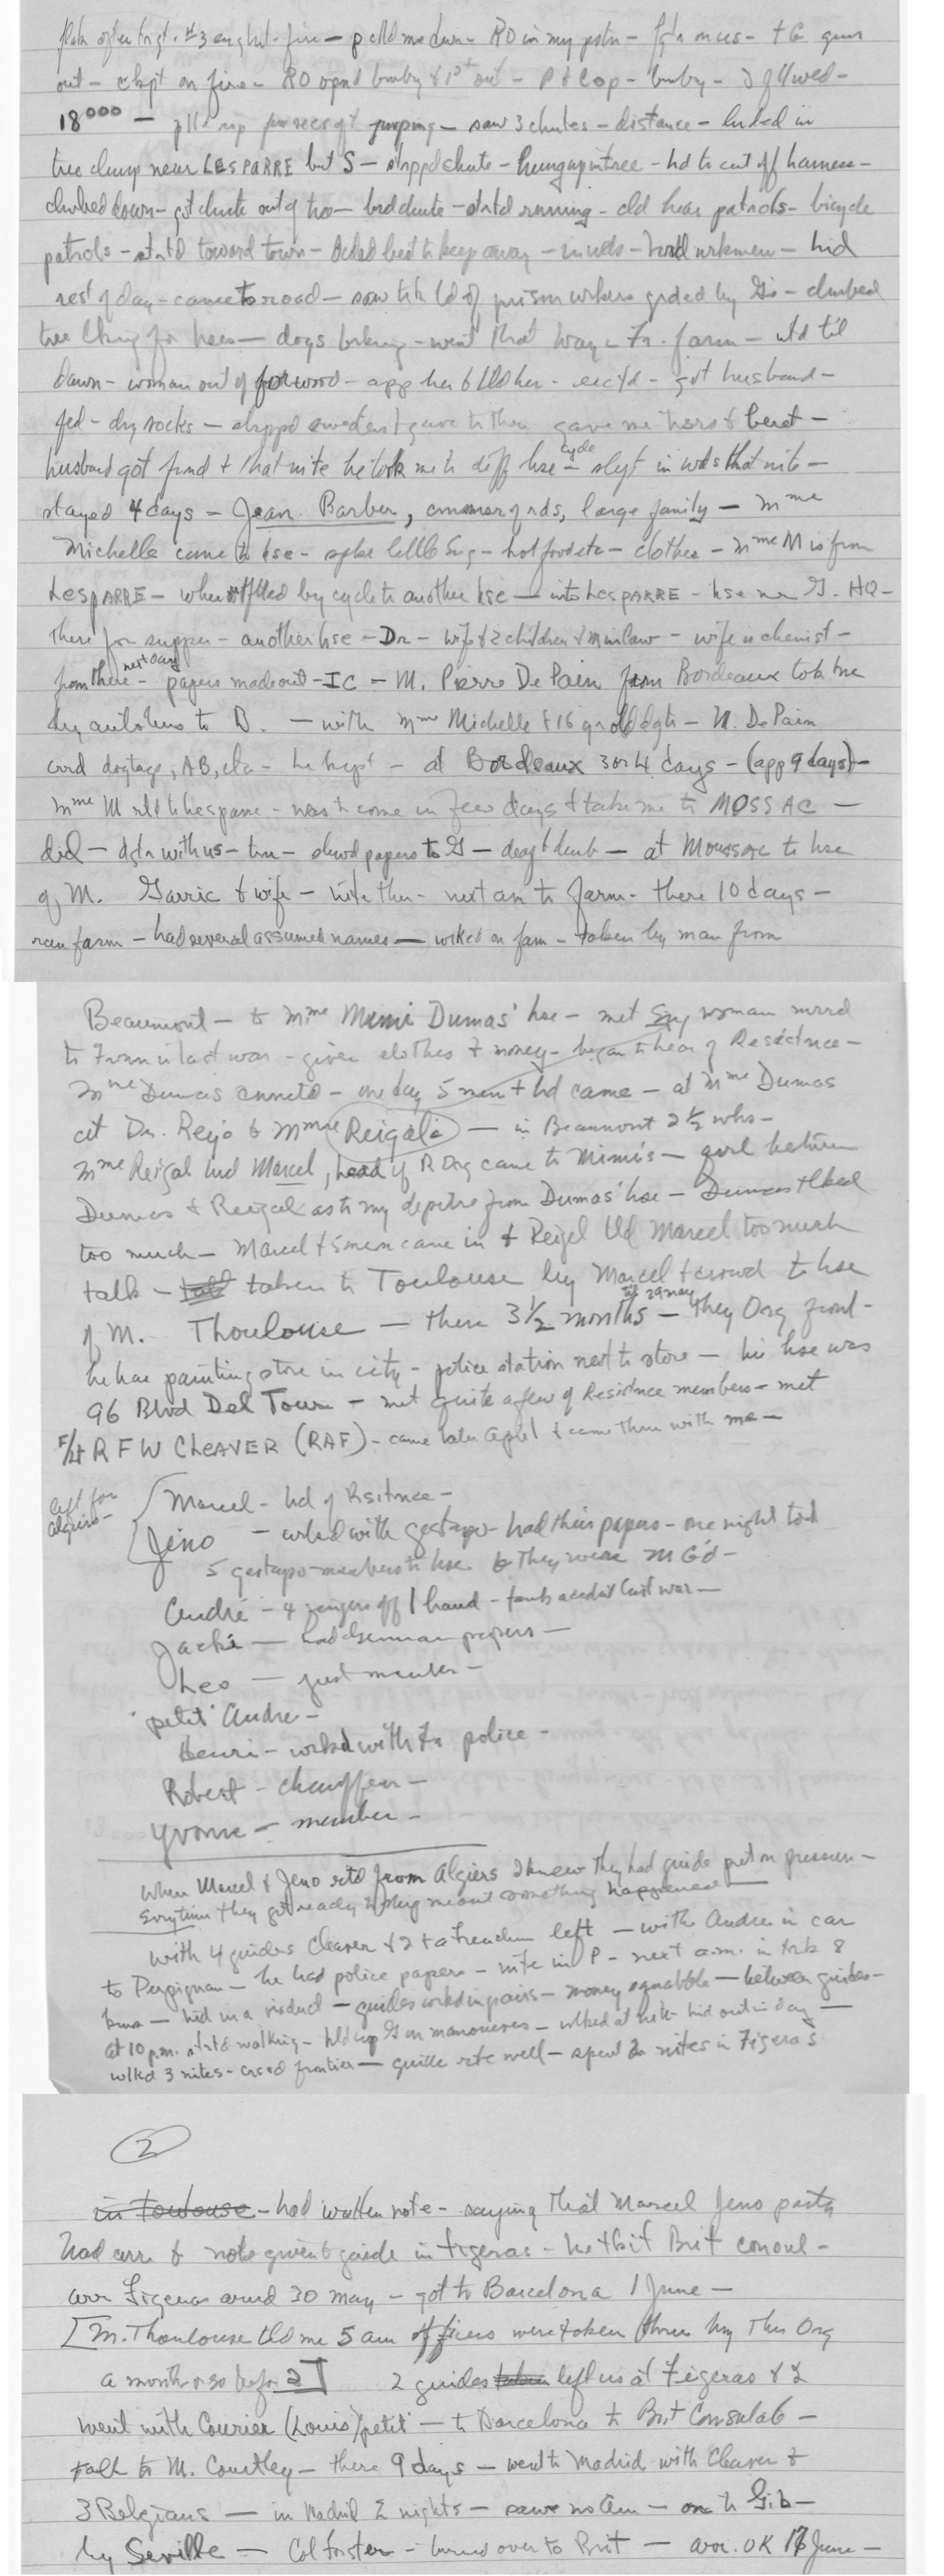 flak after tgt. #3 eng hit - fire - p clld me down - RO in my pstn - ftr on us - TG guns
out - ckpt on fire - RO opnd bmby & 1st out - P & Cop - bmby - I fllwed -
18000 - jumping - saw 3 chutes - distance - landed in
tree clump near LESPARRE but S - slippd chute - hung up in tree - hd to cut off harness -
climbed down - got chute out of tree - burd chute - startd running - cld hear patrols - bicycle
patrols - startd toward town - dcded best to keep away - in wds - heard wrkmen - hid
rest of day - came to road - saw trk ld of prison wrkers grded by Gs - climbed
tree lking for hses - dogs barking - went that way - Fr. farm - wtd til
dawn - woman out of for wood - app her & tld her - excitd - got husband -
fed - dry socks - slippd sweater & gave to them gave me trsrs & beret -
husband got frnd & that nite he took me to diff hse - cycle - slept in wds that nite -
stayed 4 days - Jean Barber, cmmer of rds, large family - Mme
Michelle came to hse - spke little Eng - hot food etc - clothes - Mme M is from
LESPARRE - by cycle to another hse - into LESPARRE - hse nr G. HQ -
there for supper - another hse - Dr - wife & 2 children & m in law - wife is chemist -
from there - next day papers made out - IC - M. Pierre De Pain from Bordeaux took me
by autobus to B. - with Mme Michelle & 16 yr old dgtr - M. De Pain
crrd dogtags, AB, etc - he kept - at Bordeaux 3 or 4 days - (app 9 days) -
Mme M rtd to Lesparre - was to come in few days & take me to MOSSAC -
did - dgtr with us - trn - showd papers to G - deaf & dumb - at Moussac to hse
of M. Garric & wife - nite thr - next am to farm - there 10 days -
ran farm - had several assumed names - wrked on farm - taken by man from
Beaumont - to Mme Mimi Dumas' hse - met Eng woman mrrd
to Frnm in last war - given clothes & money - began to hear of Resistnce -
Mme Dumas - one day 5 men & hd came - at Mme Dumas
at Dr. Rejo & Mme Reigala - in Beaumont 2 1/2 wks -
Mme Reigal and Marcel, head of R Org came to Mimi's - qurl between
Dumas & Reigal as to my deprtre from Dumas' hse - Dumas tlked
too much - Marcel & 5 men came in & Reigel tld Marcel too much
talk - taken to Toulouse by Marcel & crowd to hse
of M. Thoulouse - there 3 1/2 months - til 29 May - they Org frnd -
he has painting store in city - police station next to store - his hse was
96 Blvd Del Tour - met quite a few of Resistnce members - met
F/Lt R F W CLEAVER (RAF) - came later April & came thru with me -
left for
Algiers -
Marcel - hd of Rsistnce -
Jeno - wrked with gestapo - had their papers - one night took
5 gestapo members to hse & they were MG'd -
André - 4 fingers off 1 hand - tank accdnt last war -
Jacki - had German papers -
Leo - just member -
'petit' Andre -
Henri - wrked with Fr police -
Robert - chauffeur -
Yvonne - member -
When Marcel & Jeno rtd from Algiers I knew they had guide put on pressure -
Evrytime they got ready to slip meant something happened -
With 4 guides Cleaver & 2 & a Frenchmn left - with Andre in car
to Perpignan - he had police papers - nite in P - next a.m. in trk 8
kms - hid in a viaduct - guides wrked in pairs - money squabble - between guides -
at 10 p.m. strtd walking - hld up Gs on manouvres - wlked at nite hid out in day -
wlkd 3 nites - crssd frontier - guide rte well - spent 2 nites in Figeras
2
in toulouse - had written note - saying that Marcel Jeno party
had arr & note given to guide in Figeras - he tk it Brit consul -
arr Figeras arnd 30 May - got to Barcelona 1 June -
[M. Thoulouse tld me 5 am officers were taken thru by this Org
a month or so before I] 2 guides taken left us at Figeras & 2
went with Courier (Louis) 'petit' - to Barcelona to Brit Consulate -
talk to M. Courtley - there 9 days - went to Madrid with Cleaver &
3 Belgians - in Madrid 2 nights - saw no Am - on to Gib -
by Seville - Col Forster - turned over to Brit - arr. UK 17 June -